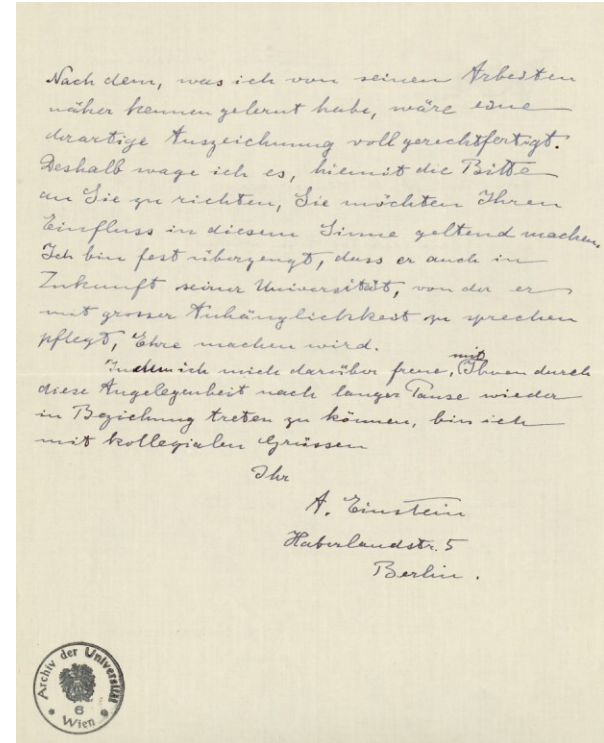 Nach dem, was ich von seinen Arbeiten
näher kennen gelernt habe, wäre eine
derartige Auszeichnung voll gerechtfertigt.
Deshalb wage ich es, hiemit die Bitte
an Sie zu richten, Sie möchten Ihren
Einfluss in diesem Sinne geltend machen.
Ich bin fest überzeugt, dass er auch in
Zukunft seiner Universität, von der er
mit grosser Anhänglichkeit zu sprechen
pflegt, Ehre machen wird.
Indem ich mich darüber freue, mit Ihnen durch
diese Angelegenheit nach langer Pause wieder
in Beziehung treten zu können, bin ich
mit kollegialen Grüssen
Ihr
A. Einstein
Haberlandstr. 5
Berlin.
Archiv der Universität
6
Wien